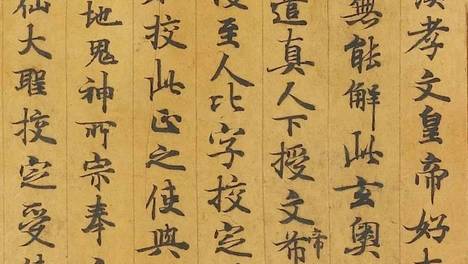 孝文皇帝好
無能解此玄奧
遣真人下授文希帝
至人比字挍定
挍此正之使與
地鬼神所宗奉
仙大聖挍定受